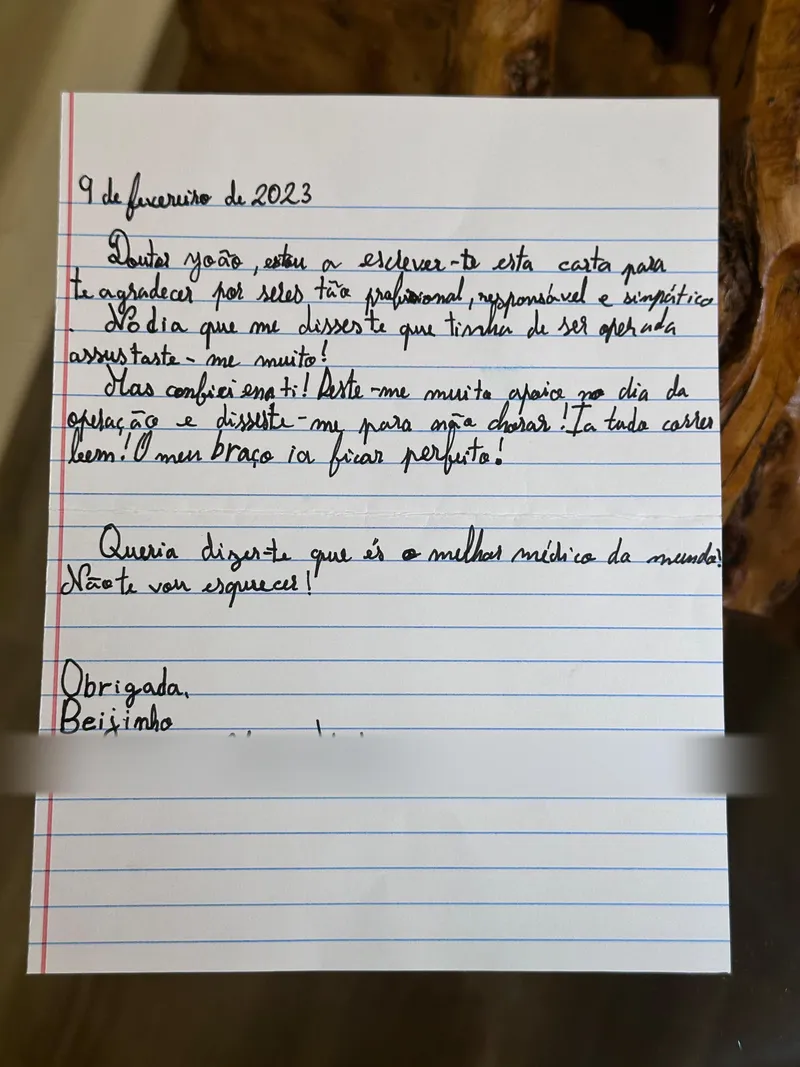 9 de fevereiro de 2023
Doutor João, estou a escrever-te esta carta para
te agradecer por seres tão profissional, responsável e simpático
. No dia que me disseste que tinha de ser operada
assustaste-me muito!
Mas confiei em ti! Deste-me muito apoio no dia da
operação e disseste-me para não chorar! Ia tudo correr
bem! O meu braço ia ficar perfeito!
Queria dizer-te que és o melhor médico do mundo!
Não te vou esquecer!
Obrigada,
Beijinho